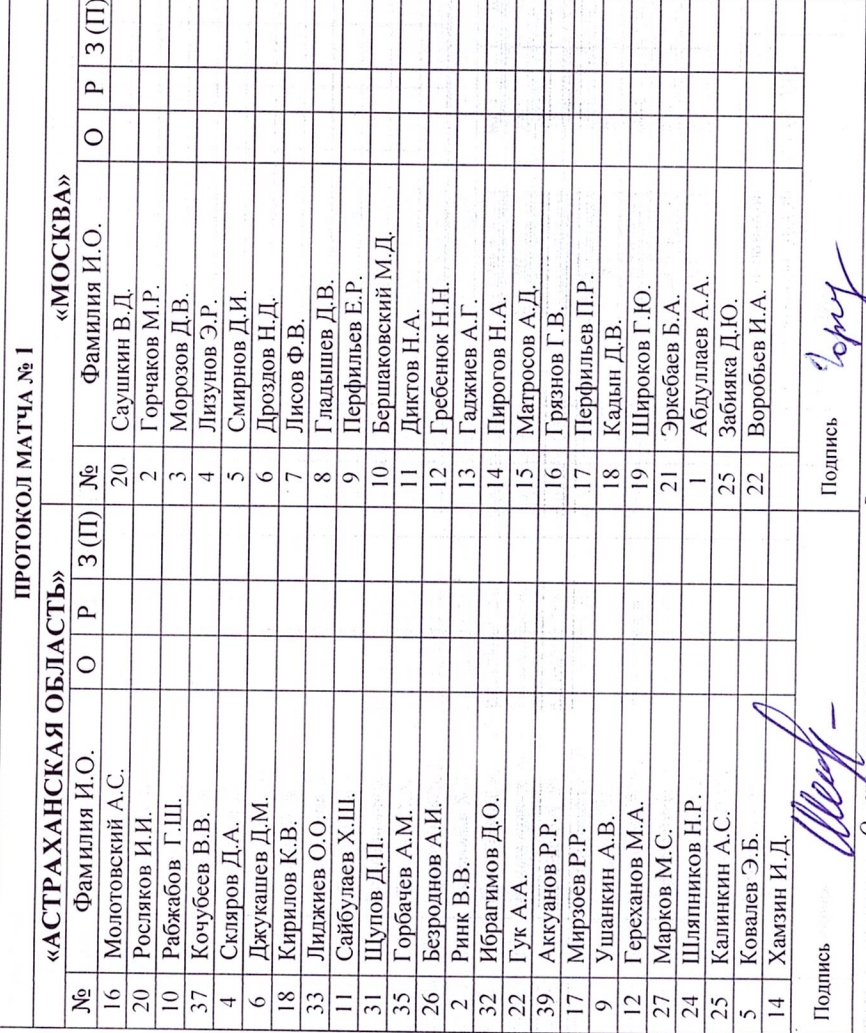 ПРОТОКОЛ МАТЧА № 1
«АСТРАХАНСКАЯ ОБЛАСТЬ» «МОСКВА»
№ Фамилия И.О. О Р З (П) № Фамилия И.О. О Р З (П)
16 Молотовский А.С. 20 Саушкин В.Д.
20 Росляков И.И. 2 Горчаков М.Р.
10 Рабжабов Г.Ш. 3 Морозов Д.В.
37 Кочубеев В.В. 4 Лизунов Э.Р.
4 Скляров Д.А. 5 Смирнов Д.И.
6 Джукашев Д.М. 6 Дроздов Н.Д.
18 Кирилов К.В. 7 Лисов Ф.В.
33 Лиджиев О.О. 8 Гладышев Д.В.
11 Сайбулаев Х.Ш. 9 Перфильев Е.Р.
31 Щупов Д.П. 10 Бершаковский М.Д.
35 Горбачев А.М. 11 Диктов Н.А.
26 Безроднов А.И. 12 Гребенюк Н.Н.
2 Ринк В.В. 13 Гаджиев А.Г.
32 Ибрагимов Д.О. 14 Пирогов Н.А.
22 Гук А.А. 15 Матросов А.Д.
39 Аккуанов Р.Р. 16 Грязнов Г.В.
17 Мирзоев Р.Р. 17 Перфильев П.Р.
9 Ушанкин А.В. 18 Кадын Д.В.
12 Гереханов М.А. 19 Широков Г.Ю.
27 Марков М.С. 21 Эркебаев Б.А.
24 Шляпников Н.Р. 1 Абдуллаев А.А.
25 Калинкин А.С. 25 Забияка Д.Ю.
5 Ковалев Э.Б. 22 Воробьев И.А.
14 Хамзин И.Д.
Подпись Подпись